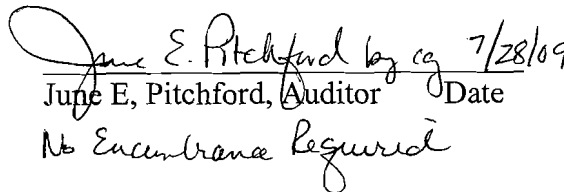 June E. Pitchford by cg 7/28/09
June E, Pitchford, Auditor Date
No Encumbrance Required